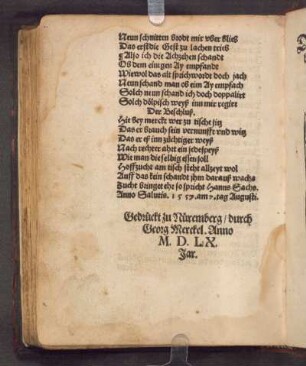 Neun schnitten brodt mir vber blieb
Das erst die Gest zu lachen trieb
Also ich die Achzehen schandt
Ob dem eingen Ay empfandt
Wiewol das alt sprichwordt doch jach
Neun schand man ob eim Ay empfach
Solch neun schand ich doch doppaliert
Solch dölpisch weyß inn mir regirt
Der Beschluß.
Hie bey merck wer zu tisch sitz
Das er brauch sein vernunfft vnd witz
Das er eß inn züchtiger weyß
Nach rechter ahrt ein jede speyß
Wie man dieselbig essen soll
Hoffzucht am tisch steht allzeyt wol
Auff das kein schandt jhm darauß wachs
Zucht bringet ehr so spricht Hanns Sachs.
Anno Salutis. 1557. am 7. tag Augusti.
Gedrückt zu Nüremberg / durch
Georg Merckel. Anno
M. D. LX.
Jar.